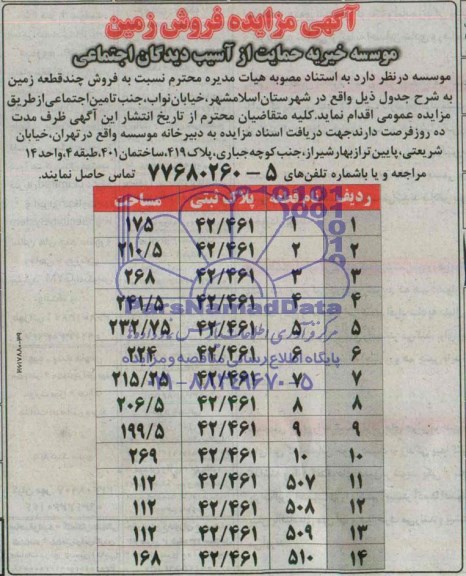 آگهی مزایده فروش زمین
موسسه خیریه حمایت از آسیب دیدگان اجتماعی
موسسه درنظر دارد به استناد مصوبه هیات مدیره محترم نسبت به فروش چندقطعه زمین
به شرح جدول ذیل واقع در شهرستان اسلامشهر، خیابان نواب، جنب تامین اجتماعی از طریق
مزایده عمومی اقدام نماید. کلیه متقاضیان محترم از تاریخ انتشار این آگهی ظرف مدت
ده روز فرصت دارند جهت دریافت اسناد مزایده به دبیرخانه موسسه واقع در تهران، خیابان
شریعتی، پایین تر از بهارشیراز، جنب کوچه جباری، پلاک ۴۱۹، ساختمان ۴۰۱، طبقه ۴، واحد ۱۴
مراجعه و یا باشماره تلفن‌های ۵ – ۷۷۶۸۰۲۶۰ تماس حاصل نمایند.
ردیف نام قطعه پلاک ثبتی مساحت
۱ ۱ ۴۲/۴۶۱ ۱۷۵
۲ ۲ ۴۲/۴۶۱ ۲۱۰/۵
۳ ۳ ۴۲/۴۶۱ ۲۶۸
۴ ۴ ۴۲/۴۶۱ ۲۴۱/۵
۵ ۵ ۴۲/۴۶۱ ۲۳۲/۷۵
۶ ۶ ۴۲/۴۶۱ ۲۲۴
۷ ۷ ۴۲/۴۶۱ ۲۱۵/۲۵
۸ ۸ ۴۲/۴۶۱ ۲۰۶/۵
۹ ۹ ۴۲/۴۶۱ ۱۹۹/۵
۱۰ ۱۰ ۴۲/۴۶۱ ۲۶۹
۱۱ ۵۰۷ ۴۲/۴۶۱ ۱۱۲
۱۲ ۵۰۸ ۴۲/۴۶۱ ۱۱۲
۱۳ ۵۰۹ ۴۲/۴۶۱ ۱۱۲
۱۴ ۵۱۰ ۴۲/۴۶۱ ۱۶۸
ParsNamadData
پایگاه اطلاع رسانی مناقصه و مزایده
۰۲۱-۸۸۳۴۹۶۷۰-۵